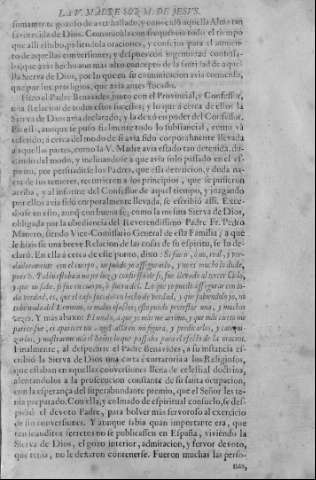 LA V. MADRE SOR M. DE JESVS.
sumamente gozoso de aver hallado, y conocido aquella Alma tan
favorecida de Dios. Comunicòla con frequencia todo el tiempo
que alli estubo, pidiendola oraciones, y consejos para el aumento
de aquellas conversiones; y despues con ingenuidad confessa-
que avia hecho aun mas alto concepto de la santidad de aque-
lla Sierva de Dios, por lo que en su comunicacion avia conocido,
que por los prodigios, que avia antes tocado.
Hizo el Padre Benavides junto con el Provincial, y Confessor,
una Relacion de todos estos sucessos, y lo que à cerca de ellos la
Sierva de Dios avia declarado, y la dexò en poder del Confessor.
Pareciò, aunque se puso fielmente todo lo substancial, como và
referido; à cerca del modo de si avia sido corporalmente llevada
à aquellas partes, como la V. Madre avia estado tan detenida,
en el modo, y inclinandose à que avia solo passado en el es-
piritu, por persuadirse los Padres, que esta detencion, y duda na-
cia de sus temores, recurrieron à los principios, que se pusieron
arriba, y al informe del Confessor de aquel tiempo, y juzgando
por ellos avia sido corporalmente llevada, se escribiò assi. Exce-
dose en esto, aunq̃ con buena fee, como la misma Sierva de Dios,
obligada por la obediencia del Reverendissimo Padre Fr. Pedro
Manero, siendo Vice-Comissario General de esta Familia, à que
le hiziesse una breve Relacion de las cosas de su espiritu, se lo de-
clarò. En ella à cerca de este punto, dixo: Si fue ir, ò no, real, y
verdaderamente con el cuerpo, no puedo yo assegurarlo, y no es mucho lo dude,
pues S. Pablo estaba a mejor luz, y confiessa de sì, fue llevado al tercer Cielo,
y que no sabe si fue en cuerpo, ò fuera de el. Lo que yo puedo assegurar con to-
da verdad, es, que el caso sucediò en hecho de verdad, y que sabiendolo yo, no
tuvo nada del Demonio, ni malos efectos; esto puedo protestar una, y muchas
vezes. Y mas abaxo: El modo, à que yo mas me arrimo, y que mas cierto me
parece fue, el aparecerse un Angel allà en mi figura, y predicarlos, y catequi-
zarlos, y mostrarme acà el Señor lo que passaba para el efecto de la oracion.
Finalmente, al despedirse el Padre Benavides, à su instancia es-
cribiò la Sierva de Dios una carta exortatoria à los Religiosos,
que estaban en aquellas conversiones llena de celestial doctrina,
alentandolos à la prosecucion constante de su santa ocupacion,
con la esperança del superabundante premio, que el Señor les te-
nia preparado. Con ella, y colmado de espiritual consuelo, se des-
pidiò el devoto Padre, para bolver mas fervoroso al exercicio
de sus conversiones. Y aunque sabia quan importante era, que
tan inauditos secretos no se publicassen en España, viviendo la
Sierva de Dios, el gozo interior, admiracion, y fervor devoto,
que tenia, no le dexaron contenerse. Fueron muchas las perso-
nas,